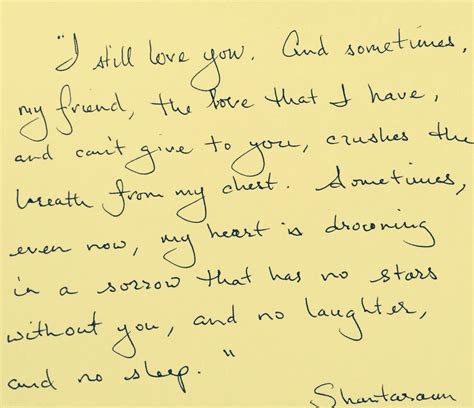 "I still love you. And sometimes,
my friend, the love that I have,
and can't give to you, crushes the
breath from my chest. Sometimes,
even now, my heart is drowning
in a sorrow that has no stars
without you, and no laughter,
and no sleep."
Shantaram